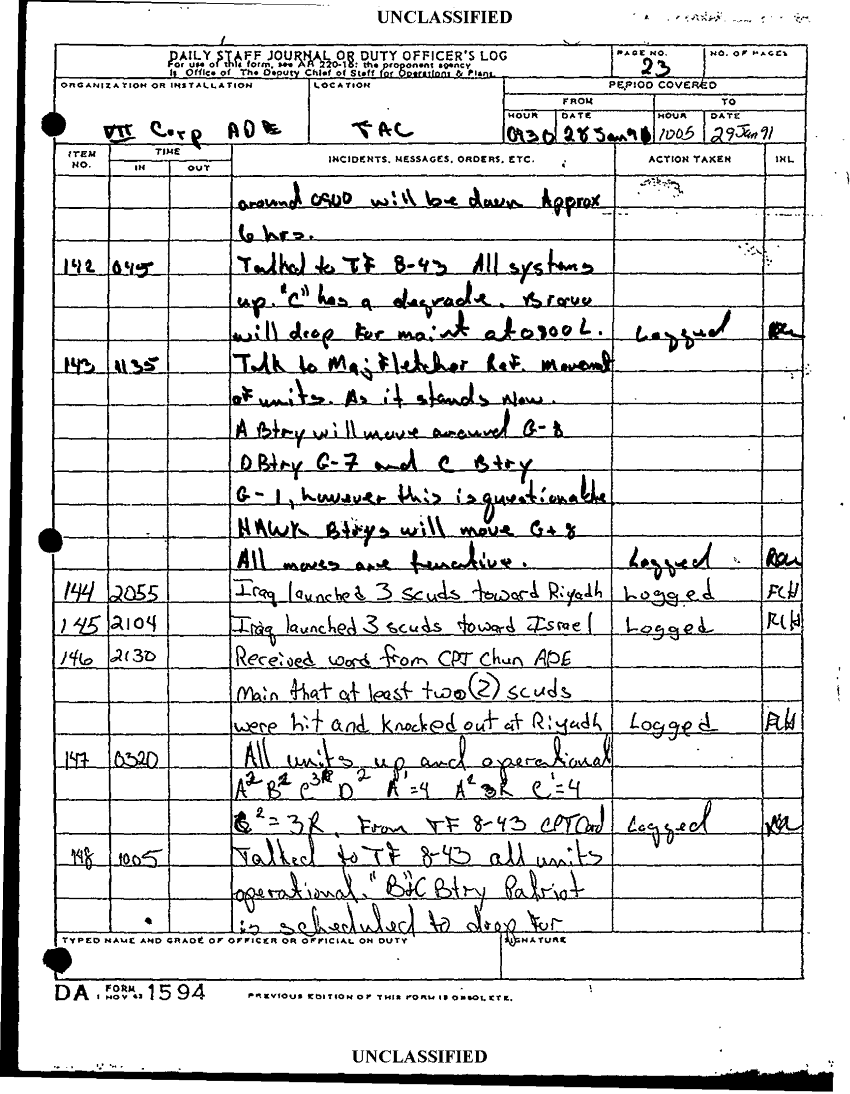 UNCLASSIFIED
DAILY STAFF JOURNAL OR DUTY OFFICER'S LOG
For use of this form, see AR 220-15; the proponent agency
is Office of The Deputy Chief of Staff for Operations & Plans.
PAGE NO.
23
NO. OF PAGES
ORGANIZATION OR INSTALLATION
VII Corp ADE
LOCATION
TAC
PERIOD COVERED
FROM TO
HOUR DATE HOUR DATE
0930 28 Jan 91 1005 29 Jan 91
ITEM NO. TIME IN OUT INCIDENTS, MESSAGES, ORDERS, ETC. ACTION TAKEN INL
around will be down Approx
6 hrs.
142 Talked to TF 8-43 All systems
up. "C" has a degrade. Bravo
will drop for maint at 0800 L. Logged
143 1135 Talk to Maj Fletcher Ref. movement
of units. As it stands Now.
A Btry will move around G-8
D Btry G-7 and C Btry
G-1, however this is questionable
HAWK Btrys will move G+8
All moves are tenative. Logged
144 2055 Iraq launched 3 scuds toward Riyadh Logged
145 2104 Iraq launched 3 scuds toward Israel Logged
146 2130 Received word from CPT Chun ADE
Main that at least two (2) scuds
were hit and knocked out at Riyadh Logged
147 0320 All units up and operational
A² B² C³ᴿ D² A¹=4 A² 3R C¹=4
C²=3R. From TF 8-43 CPT Logged
148 1005 Talked to TF 8-43 all units
operational. "B+C Btry Patriot
is scheduled to drop for
TYPED NAME AND GRADE OF OFFICER OR OFFICIAL ON DUTY
SIGNATURE
DA FORM 1 NOV 62 1594
PREVIOUS EDITION OF THIS FORM IS OBSOLETE.
UNCLASSIFIED